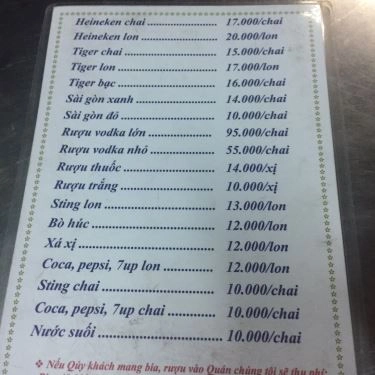 Heineken chai ........................ 17.000/chai
Heineken lon .......................... 20.000/lon
Tiger chai ............................... 15.000/chai
Tiger lon ................................. 17.000/lon
Tiger bạc ................................ 16.000/chai
Sài gòn xanh .......................... 14.000/chai
Sài gòn đỏ .............................. 10.000/chai
Rượu vodka lớn ..................... 95.000/chai
Rượu vodka nhỏ .................... 55.000/chai
Rượu thuốc ............................ 14.000/xị
Rượu trắng ............................ 10.000/xị
Sting lon ................................. 13.000/lon
Bò húc .................................... 12.000/lon
Xá xị ....................................... 12.000/lon
Coca, pepsi, 7up lon ............... 12.000/lon
Sting chai ............................... 10.000/chai
Coca, pepsi, 7up chai ............. 10.000/chai
Nước suối ............................... 10.000/chai
❖ Nếu Qúy khách mang bia, rượu vào Quán chúng tôi sẽ thu phí: